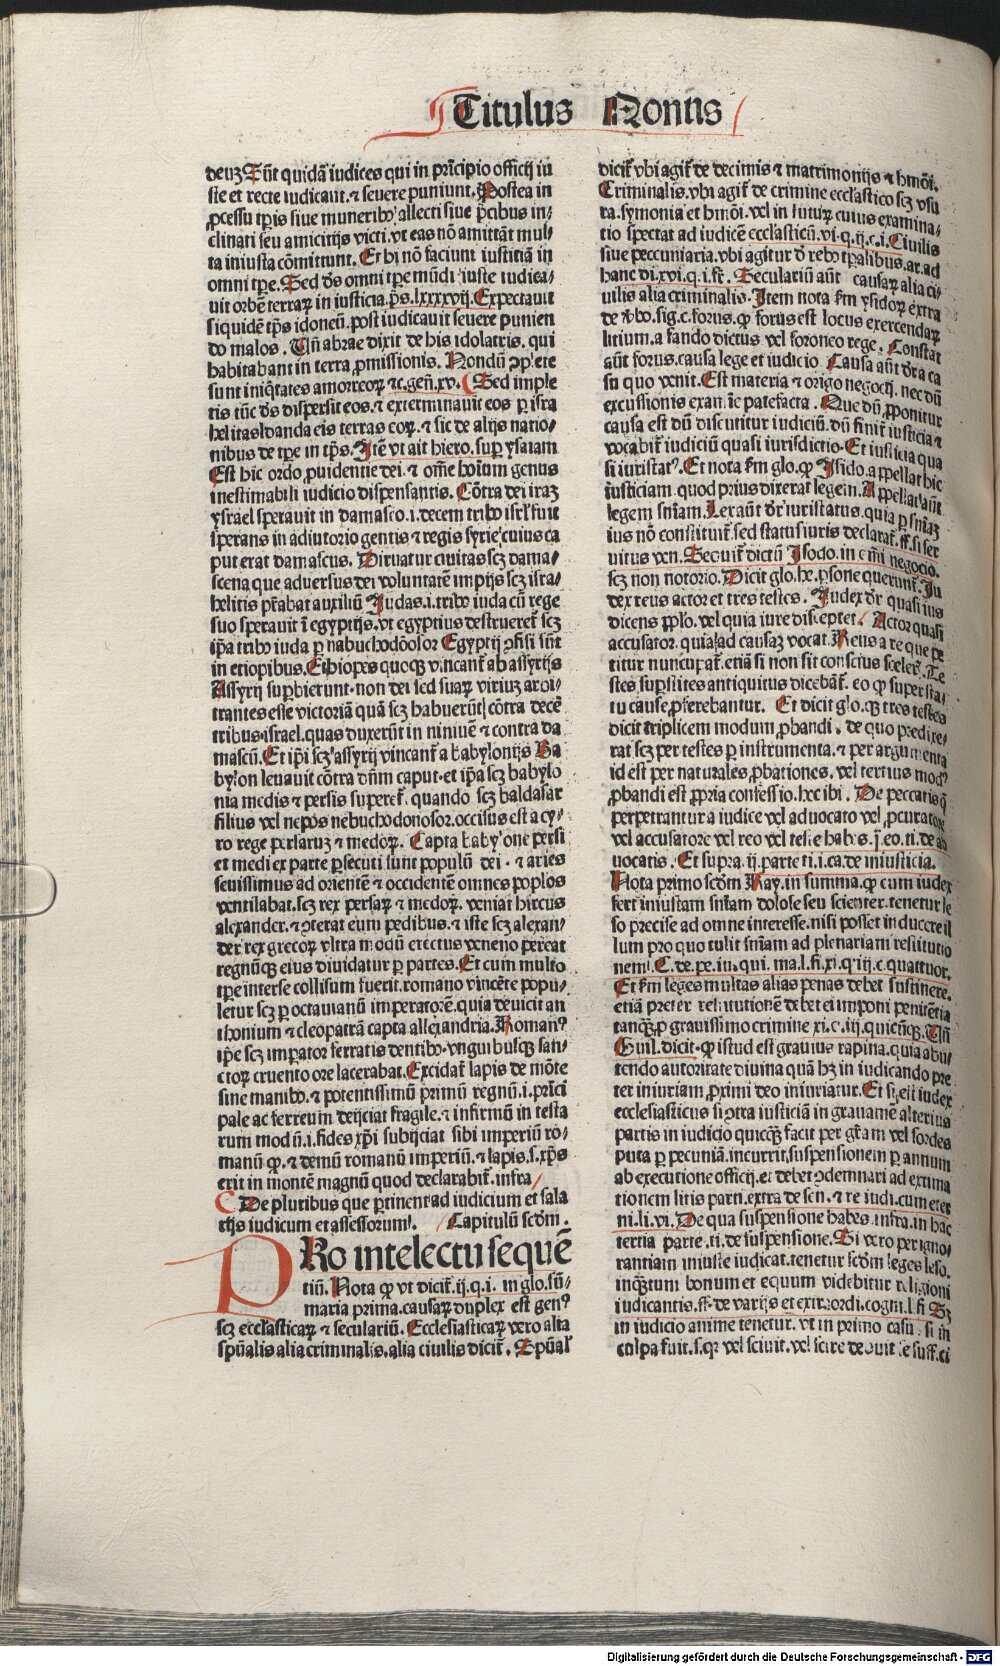 Titulus Nonus
deuz Sūt quidā iudices qui in prīcipio officij iu
ste et recte iudicant. ⁊ seuere puniunt. Postea in
ꝓcessu tꝑis siue munerib⁹ allecti siue p̄cibus in/
clinati seu amicitijs victi. vt eas nō amittāt mul/
ta iniusta cōmittunt. Et hi nō faciunt iustitiā in
omni tꝑe. Sed dn̄s omni tꝑe mūdi iuste iudica/
uit orbē terraꝝ in iusticia. p̄s. lxxxxvij. Expectauit
siquidē tp̄s idoneū. post iudicauit seuere punien
do malos. Un̄ abrae dixit de his idolatris. qui
habitabant in terra ꝓmissionis. Nondū ↄplete
sunt iniq̄tates amorreoꝝ ⁊c. gen̄. xv. Sed imple
tis tūc dn̄s dispersit eos. ⁊ exterminauit eos ꝑ isra
helitas danda eis terras eoꝝ. ⁊ sic de alijs natio/
nibus de tꝑe in tp̄s. Itē vt ait hiero. suꝑ ysaiam
Est hic ordo ꝓuidentie dei. ⁊ om̄e hoīum genus
inestimabili iudicio dispensantis. Cōtra dei iraz
ysrael sperauit in damasco. i. decem trib⁹ isrl̄ fuit
sperans in adiutorio gentis ⁊ regis syrie cuius ca
put erat damascus. Diruatur ciuitas scꝫ dama/
scena que aduersus dei voluntatē impijs scꝫ isra/
helitis p̄tabat auxiliū Judas. i. trib⁹ iuda cū rege
suo sperauit ī egyptijs. vt egyptius destrueret̄ scꝫ
ip̄a trib⁹ iuda ꝑ nabuchodōosor Egyptij ↄfisi sūt
in etiopibus. Ethiopes quoqꝫ vincant̄ ab assyrijs
Assyrij suꝑbierunt. non dei sed suaꝝ viriuꝫ arbi/
trantes esse victoriā quā scꝫ habuerūt cōtra decē
tribus israel. quas duxerūt in niniuē ⁊ contra da
mascū. Et ip̄i scꝫ assyrij vincant̄ a babylonijs Ba
bylon leuauit cōtra dn̄m caput. et ip̄a scꝫ babylo
nia medis ⁊ persis superet̄. quando scꝫ baldasar
filius vel nepos nebuchodonosor. occisus est a cy/
ro rege persaruꝫ ⁊ medoꝝ. Capta babylone persi
et medi ex parte ꝑsecuti sunt populū dei. ⁊ aries
seuissimus ad orientē ⁊ occidentē omnes poplos
ventilabat. scꝫ rex persaꝝ ⁊ medoꝝ. veniat hircus
alexander. ⁊ ↄterat eum pedibus. ⁊ iste scꝫ alexan/
der rex grecoꝝ vltra modū erectus veneno pereat
regnūqꝫ eius diuidatur ꝑ partes. Et cum multo
tꝑe interse collisum fuerit. romano vincēte popu/
letur scꝫ ꝑ octauianū imperatorē. quia deuicit an
thonium ⁊ cleopatrā capta allexandria. Roman⁹
ip̄e scꝫ imꝑator ferratis dentib⁹. vnguibusqꝫ san/
ctoꝝ cruento ore lacerabat. Excidat̄ lapis de mōte
sine manib⁹. ⁊ potentissimū primū regnū. i. prīci
pale ac ferreum deijciat fragile. ⁊ infirmū in testa
rum modū. i. fides xp̄i subijciat sibi imperiū ro/
manū ꝙ. ⁊ demū romanū imperiū. ⁊ lapis. s. xp̄s
erit in montē magnū quod declarabit̄. infra
De pluribus que ꝑtinent ad iudicium et sala
rijs iudicum et assessorum. Capitulū scd̄m.
PRo intelectu sequē
tiū. Nota ꝙ vt dicit̄. ij. q. i. in glo. sū/
maria prima. causaꝝ duplex est gen⁹
scꝫ ecclasticaꝝ ⁊ seculariū. Ecclesiasticaꝝ vero alia
spūalis alia criminalis. alia ciuilis dicit̄. Spūal̄
dicit̄ vbi agit̄ de decimis ⁊ matrimonijs ⁊ hmōi.
Criminalis. vbi agit̄ de crimine ecclastico scꝫ vsu
ra. symonia et hmōi. vel in futuꝝ cuius examina/
tio spectat ad iudicē ecclasticū. vi. q. ij. c. i. Ciuilis
siue peccuniaria. vbi agitur d̄ reb⁹ tꝑalibus. ar. ad
hanc di. xvi. q. i. fr̄. Seculariū aūt causaꝝ alia ci/
uilis alia criminalis. Item nota s̄m ysidoꝝ extra
de v̄bo. sig. c. forus. ꝙ forus est locus exercendaꝝ
litium. a fando dictus vel foroneo rege. Constat
aūt forus. causa lege et iudicio Causa aūt dr̄a ca
su quo venit. Est materia ⁊ origo negocij. nec dū
excussionis exanīe patefacta. Que dū ꝓponitur
causa est dū discutitur iudiciū. dū finit̄ iusticia ⁊
vocabit̄ iudiciū quasi iurisdictio. Et iusticia qua
si iuristat⁹. Et nota s̄m glo. ꝙ Isido. appellat hic
iusticiam. quod prius dixerat legem. Appellat aūt
legem sn̄iam. Lex aūt dr̄ iuristatus. quia ꝑ sn̄iaꝫ
ius nō constituit̄. sed status iuris declarat̄. ff. si ser
uitus ven. Sequit̄ dictū Isodo. in om̄i negocio.
scꝫ non notorio. Dicit glo. he. ꝑsone querunt̄. Ju
dex reus actor et tres testes. Judex dr̄ quasi ius
dicens ꝓplo. vel quia iure disceptet. Actor quasi
accusator. quia ad causaꝫ vocat. Reus a re que pe
titur nuncupat̄. etiā si non sit conscius sceler̄. Te
stes suꝑstites antiquitus dicebāt̄. eo ꝙ super sta/
tu cause ꝓferebantur. Et dicit glo. ꝙ tres testes
dicit triplicem modum ꝓbandi. de quo predixe/
rat scꝫ per testes ꝑ instrumenta. ⁊ per argumenta
id est per naturales ꝓbationes. vel tertius mod⁹
ꝓbandi est ꝓpria confessio. hec ibi. De peccatis q̄
perpetrantur a iudice vel aduocato vel ꝓcuratore
vel accusatore vel reo vel teste habes. j. eo. ti. de ad
uocatis. Et supra. ij. parte ti. i. ca. de iniusticia.
Nota primo scd̄m Ray. in summa. ꝙ cum iudex
fert iniustam sn̄iam dolose seu scienter. tenetur le
so precise ad omne interesse. nisi posset inducere il
lum pro quo tulit sn̄iam ad plenariam restitutio
nem. C. de pe. iu. qui. ma. l. fi. xi. q. iij. c. quattuor.
Et s̄m leges multas alias penas debet sustinere.
etiā preter restitutionē debet ei imponi penitētia
tanqꝫ ꝓ grauissimo crimine xi. c. iij. quicūqꝫ. Un̄
Guil. dicit. ꝙ istud est grauius rapina. quia abu/
tendo autoritate diuina quā hꝫ in iudicando pre
ter iniuriam ꝓximi deo iniuriatur. Et si sit iudex
ecclesiasticus si ↄtra iusticiā in grauamē alterius
partis in iudicio quicqꝫ facit per gr̄am vel sordes
puta ꝑ pecuniā. incurrit suspensionem ꝑ annum
ab executione officij. et debet ↄdemnari ad extima
tionem litis parti. extra de sen. ⁊ re iudi. cum eter
ni. li. vi. De qua suspensione habes. infra. in hac
tertia parte. ti. de suspensione. Si vero per igno/
rantiam iniuste iudicat. tenetur scd̄m leges leso.
inqꝫtum bonum et equum videbitur religioni
iudicantis. ff. de varijs et extraordi. cogni. l. fi Sꝫ
in iudicio anime tenetur. vt in primo casu. si in
culpa fuit. s. qꝛ vel sciuit. vel scire debuit se suff. ci